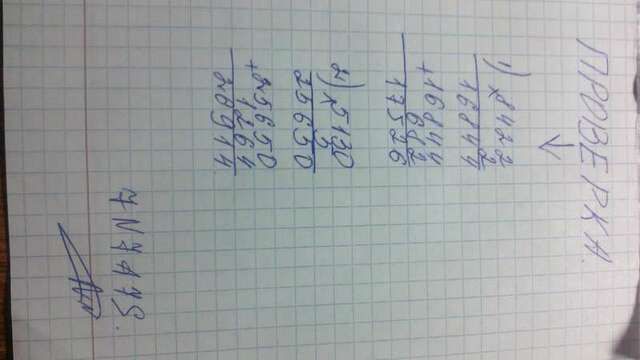 ПРОВЕРКА.
1) × 8422
2
16844
+ 16844
682
17526
2) × 5130
5
25650
+ 25650
1264
26914